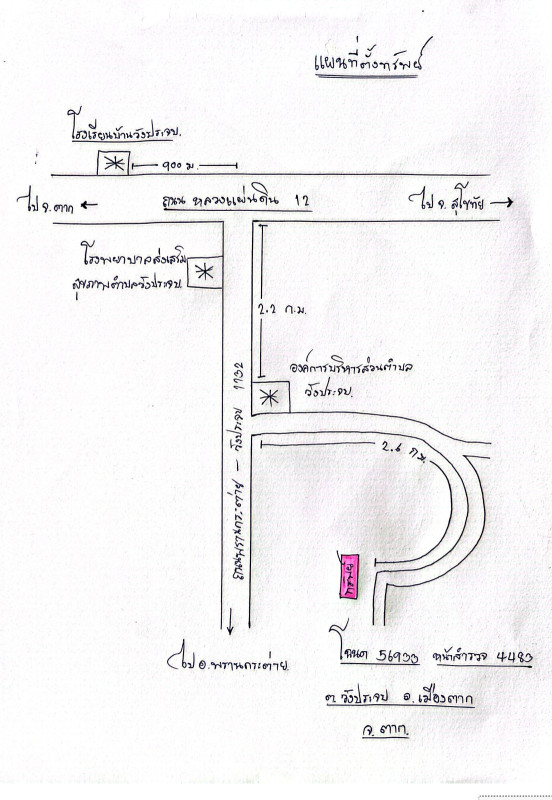 แผนที่ตั้งทรัพย์
โรงเรียนบ้านวังประจบ.
900 ม.
ไป จ.ตาก ←
ถนน หลวงแผ่นดิน 12
ไป จ. สุโขทัย →
โรงพยาบาลส่งเสริม
สุขภาพตำบลวังประจบ.
2.2 ก.ม.
องค์การบริหารส่วนตำบล
วังประจบ.
ถนนพรานกระต่าย - วังประจบ 1132
2.6 ก.ม.
ทรัพย์
ไป อ.พรานกระต่าย.
โฉนด 56933 หน้าสำรวจ 4483
ต.วังประจบ อ.เมืองตาก
จ.ตาก.